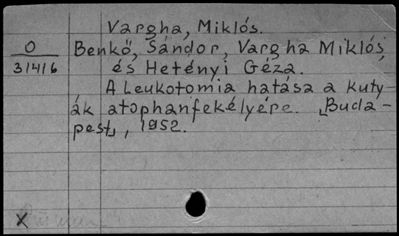 Vargha, Miklós.
O
31416
Benkő, Sándor, Vargha Miklós,
és Hetényi Géza.
A Leukotomia hatása a kuty-
ák atophanfekélyére. [Buda-
pest], 1952.
X